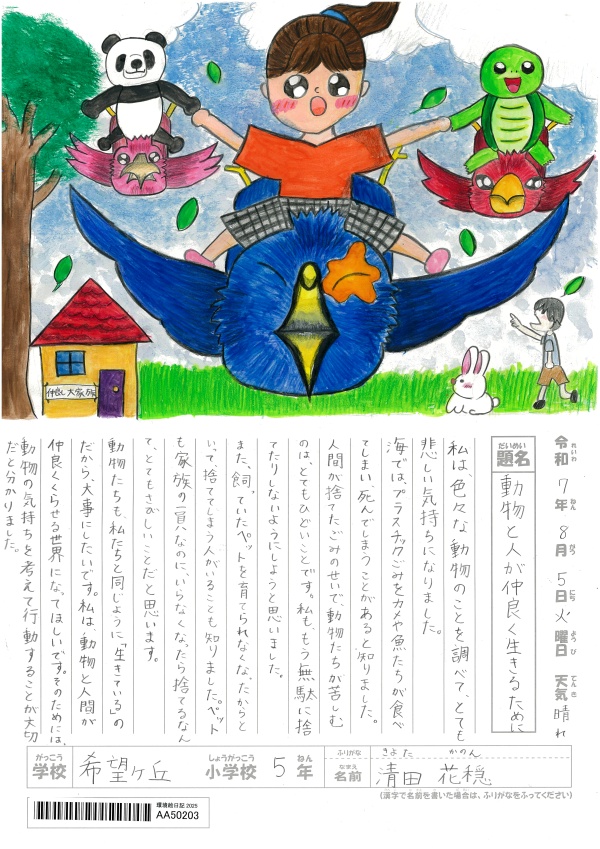 仲良し大家族
令和7年8月5日火曜日 天気 晴れ
れいわ ねん がつ にち ようび てんき
だいめい
題名 動物と人が仲良く生きるために
私は、色々な動物のことを調べて、とても
悲しい気持ちになりました。
海では、プラスチックごみをカメや魚たちが食べ
てしまい、死んでしまうことがあると知りました。
人間が捨てたごみのせいで、動物たちが苦しむ
のは、とてもひどいことです。私も、もう無駄に捨
てたりしないようにしようと思いました。
また、飼っていたペットを育てられなくなったからと
いって、捨ててしまう人がいることも知りました。ペット
も家族の一員なのに、いらなくなったら捨てるなん
て、とてもさびしいことだと思います。
動物たちも私たちと同じように、「生きている」の
だから、大事にしたいです。私は、動物と人間が
仲良くくらせる世界になってほしいです。そのためには、
動物の気持ちを考えて行動することが大切
だと分かりました。
がっこう しょうがっこう ねん
学校 希望ヶ丘 小学校 5年
ふりがな きよた かのん
なまえ
名前 清田 花穏
(漢字で名前を書いた場合は、ふりがなをふってください)
環境絵日記 2025
AA50203